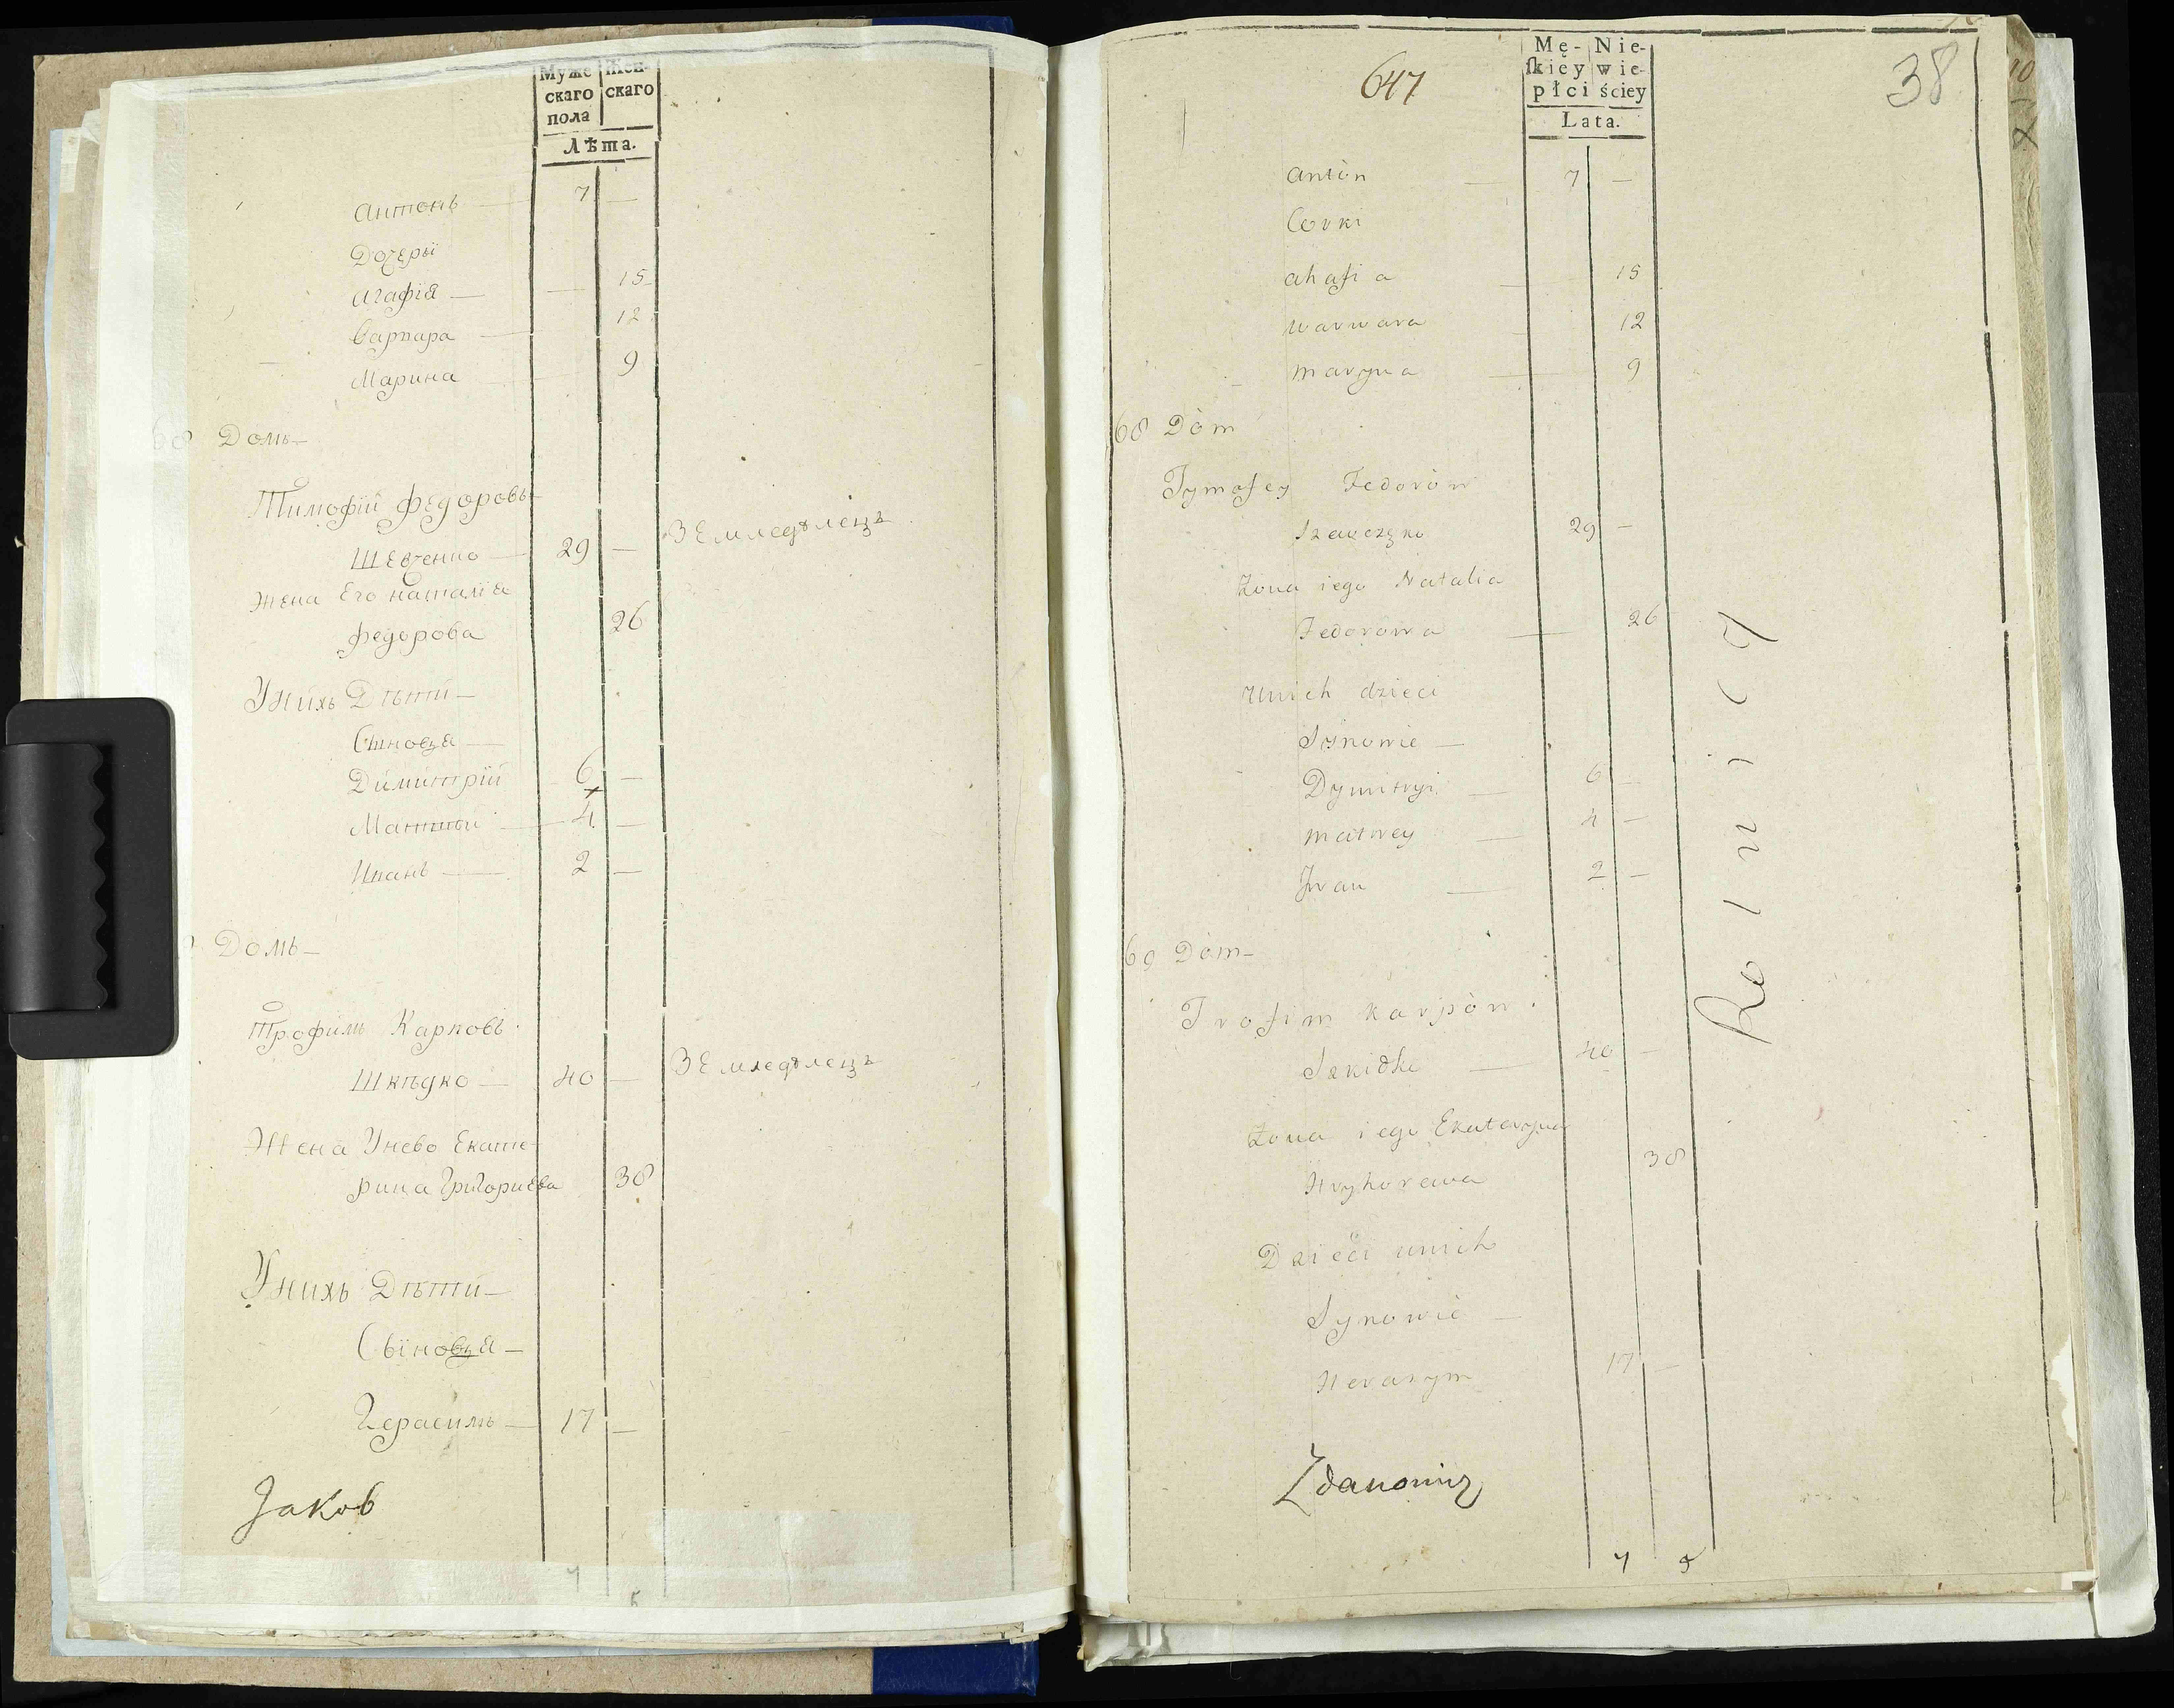 Муже Жен-
скаго скаго
пола
Лѣта.
Антонъ 7 —
Дочеры
Агафїя — 15
Варвара — 12
Марина 9
68 Домъ —
Тимофїй Федоровъ
Шевченко — 29 — Земледѣлецъ
Жена Его Наталїя
Федорова 26
Унихъ Дѣти —
Сыновя —
Димитрїй 6 —
Матвѣй 4 —
Иванъ — 2 —
Домъ —
Трофимъ Карповъ
Шкѣдко — 40 — Земледѣлецъ
Жена Унево Екате
рина Григориева 38
Унихъ Дѣти —
Сыновя —
Герасимъ — 17 —
Jakob
7 5
647
38
Mę- Nie-
ſkiey wie-
płci ściey
Lata.
Antòn — 7 —
Corki
Ahafia — 15
Warwara — 12
Maryna — 9
68 Dòm
Tymofey Fedoròw
Szewczęko 29 —
Żona iego Natalia
Fedorowa — 26
Unich dzieci
Synowie —
Dymitryi — 6 —
Matwey — 4 —
Jwan — 2 —
Rolnicy
69 Dòm —
Trofim Karpòw
Szkidko — 40 —
Żona iego Ekateryna
Hryhorewa 38
Dzieci unich
Synowie —
Herasym 17 —
Zdanowicz
7 5